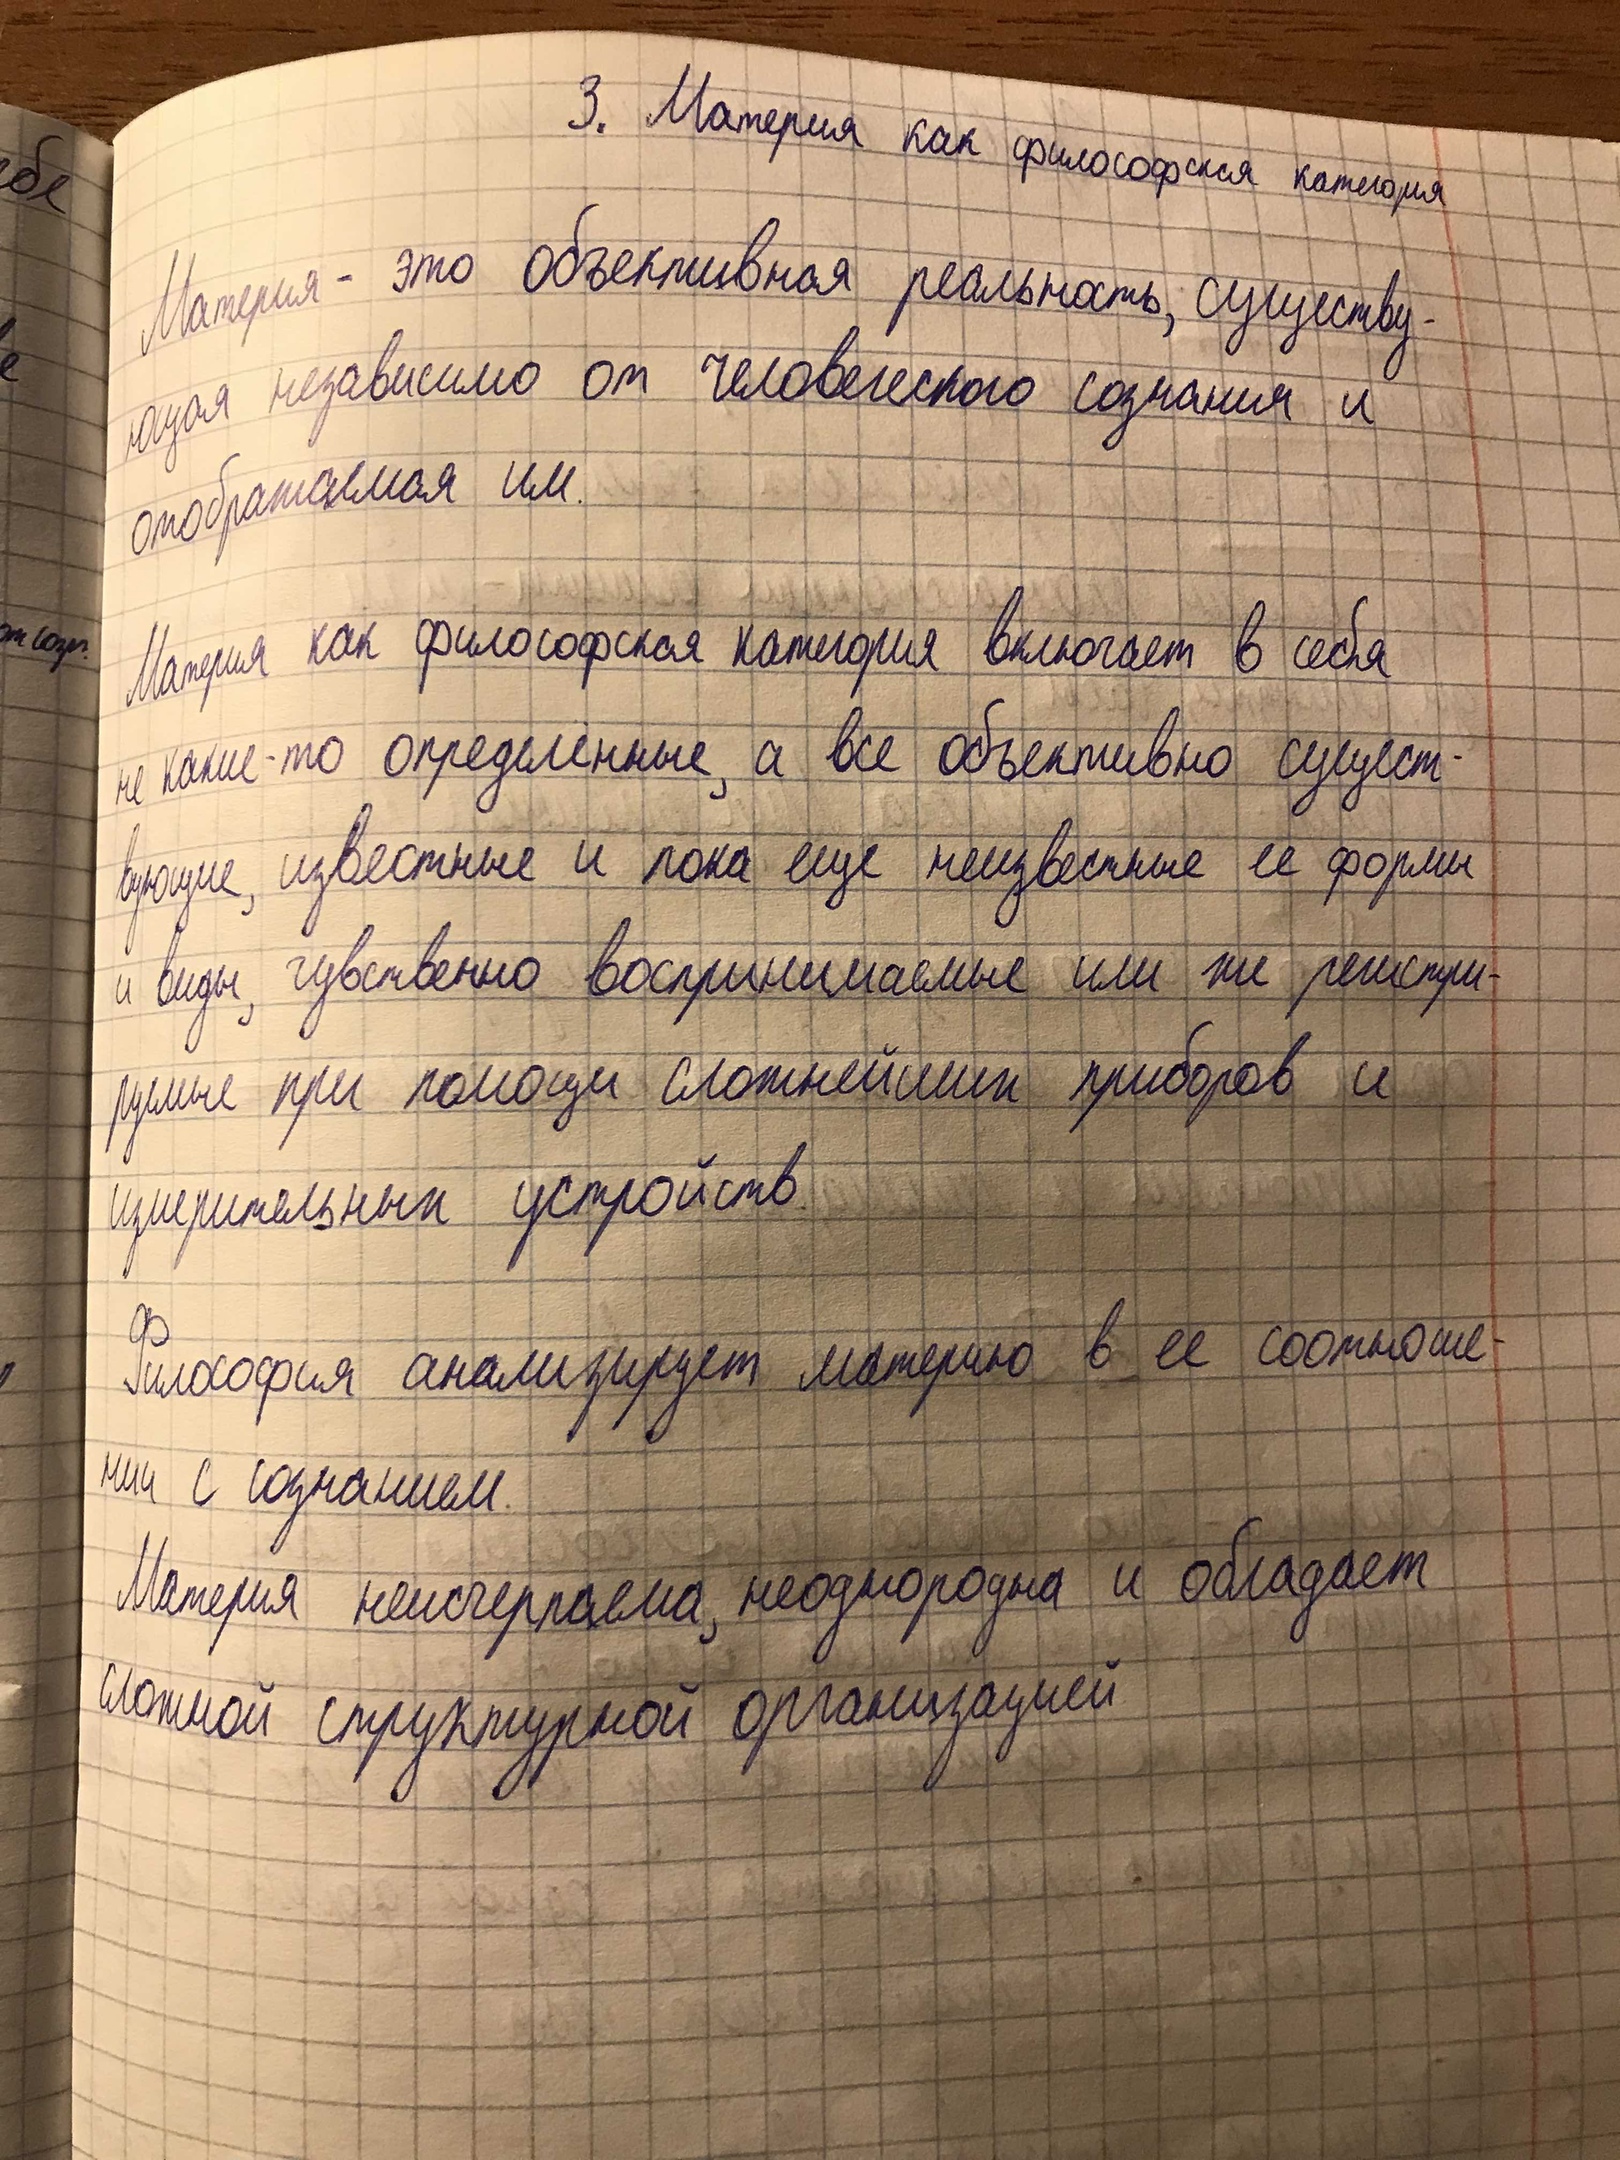 3. Материя как философская категория
Материя - это объективная реальность, существу-
ющая независимо от человеческого сознания и
отображаемая им.
Материя как философская категория включает в себя
не какие-то определённые, а все объективно сущест-
вующие, известные и пока еще неизвестные ее формы
и виды, чувственно воспринимаемые или же регистри-
руемые при помощи сложнейших приборов и
измерительных устройств.
Философия анализирует материю в ее соотноше-
нии с сознанием.
Материя неисчерпаема, неоднородна и обладает
сложной структурной организацией